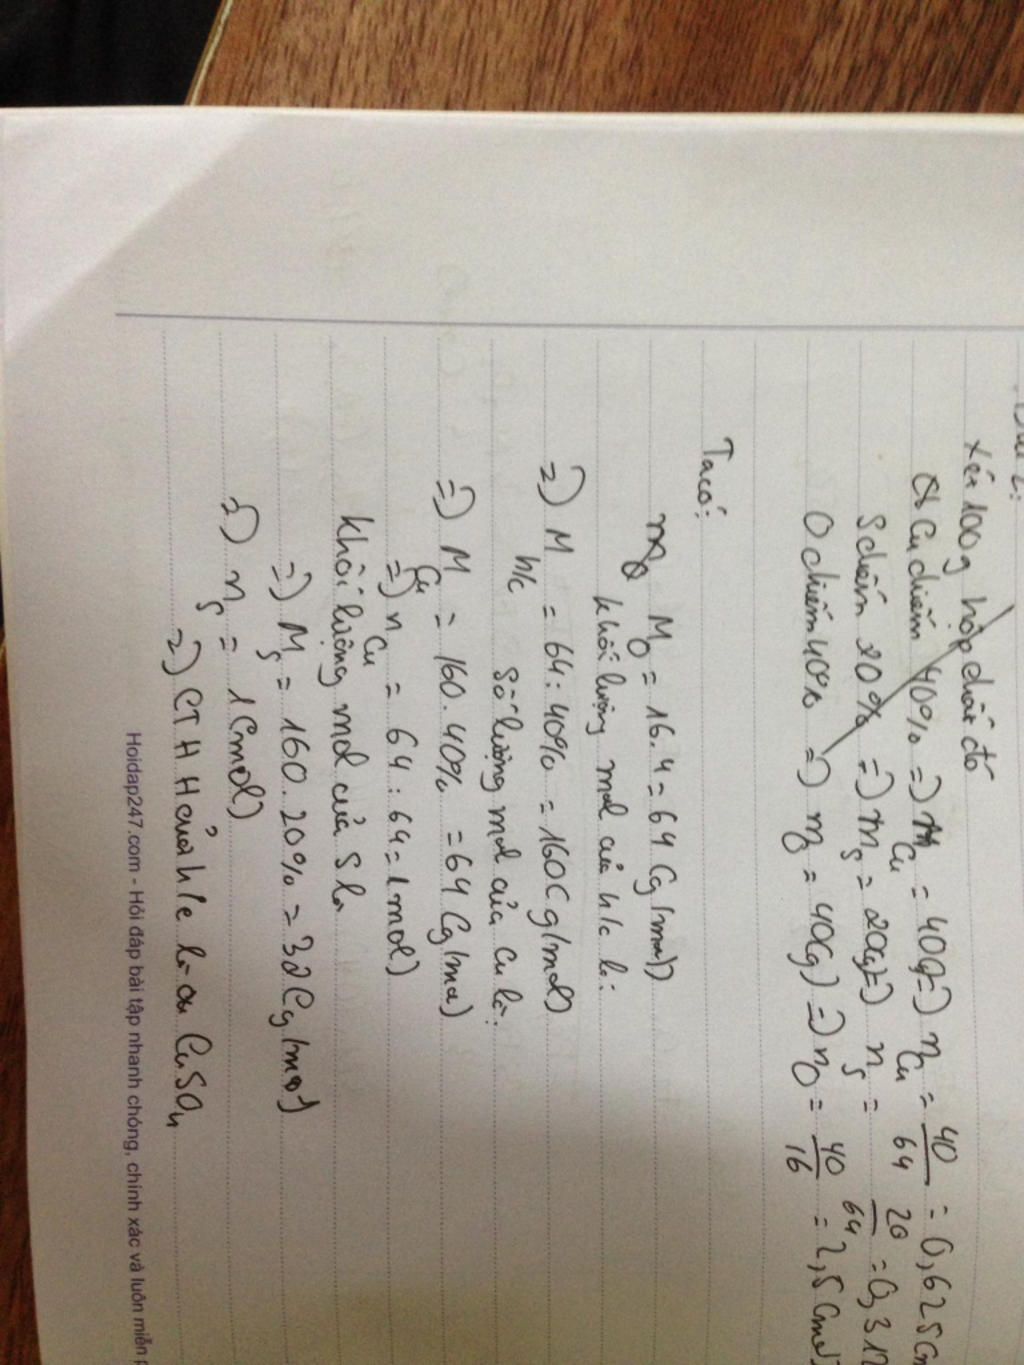 Bài 2:
Xét 100g hợp chất đó
Cu chiếm 40% => m Cu = 40(g) => n Cu = 40/64 = 0,625(m
S chiếm 20% => m S = 20(g) => n S = 20/64 = 0,312
O chiếm 40% => m O = 40(g) => n O = 40/16 = 2,5(mol)
Ta có:
M O = 16.4 = 64(g/mol)
khối lượng mol của h/c là:
=> M h/c = 64:40% = 160(g/mol)
Số lượng mol của Cu là:
=> M Cu = 160.40% = 64(g/mol)
=> n Cu = 64:64 = 1 mol)
khối lượng mol của S là
=> M S = 160.20% = 32(g/mol)
=> n S = 1(mol)
=> CTHH của h/c là CuSO4
Hoidap247.com - Hỏi đáp bài tập nhanh chóng, chính xác và luôn miễn p